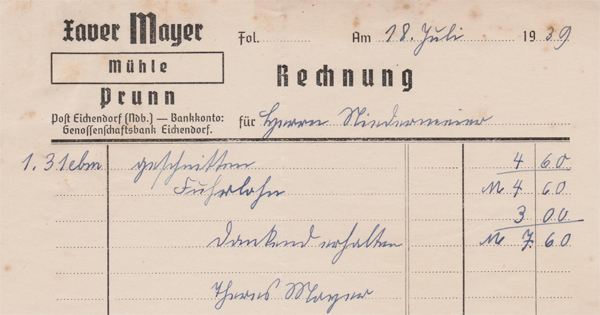 Xaver Mayer
Mühle
Prunn
Post Eichendorf (Ndb.) — Bankkonto:
Genossenschaftsbank Eichendorf.
Fol. Am 18. Juli 1939
Rechnung
für Herrn Niedermeier
1.31 ebm geschnitten 4 60
Fuhrlohn M 4 60
3 00
Dankend erhalten M 7. 60
Theres Mayer